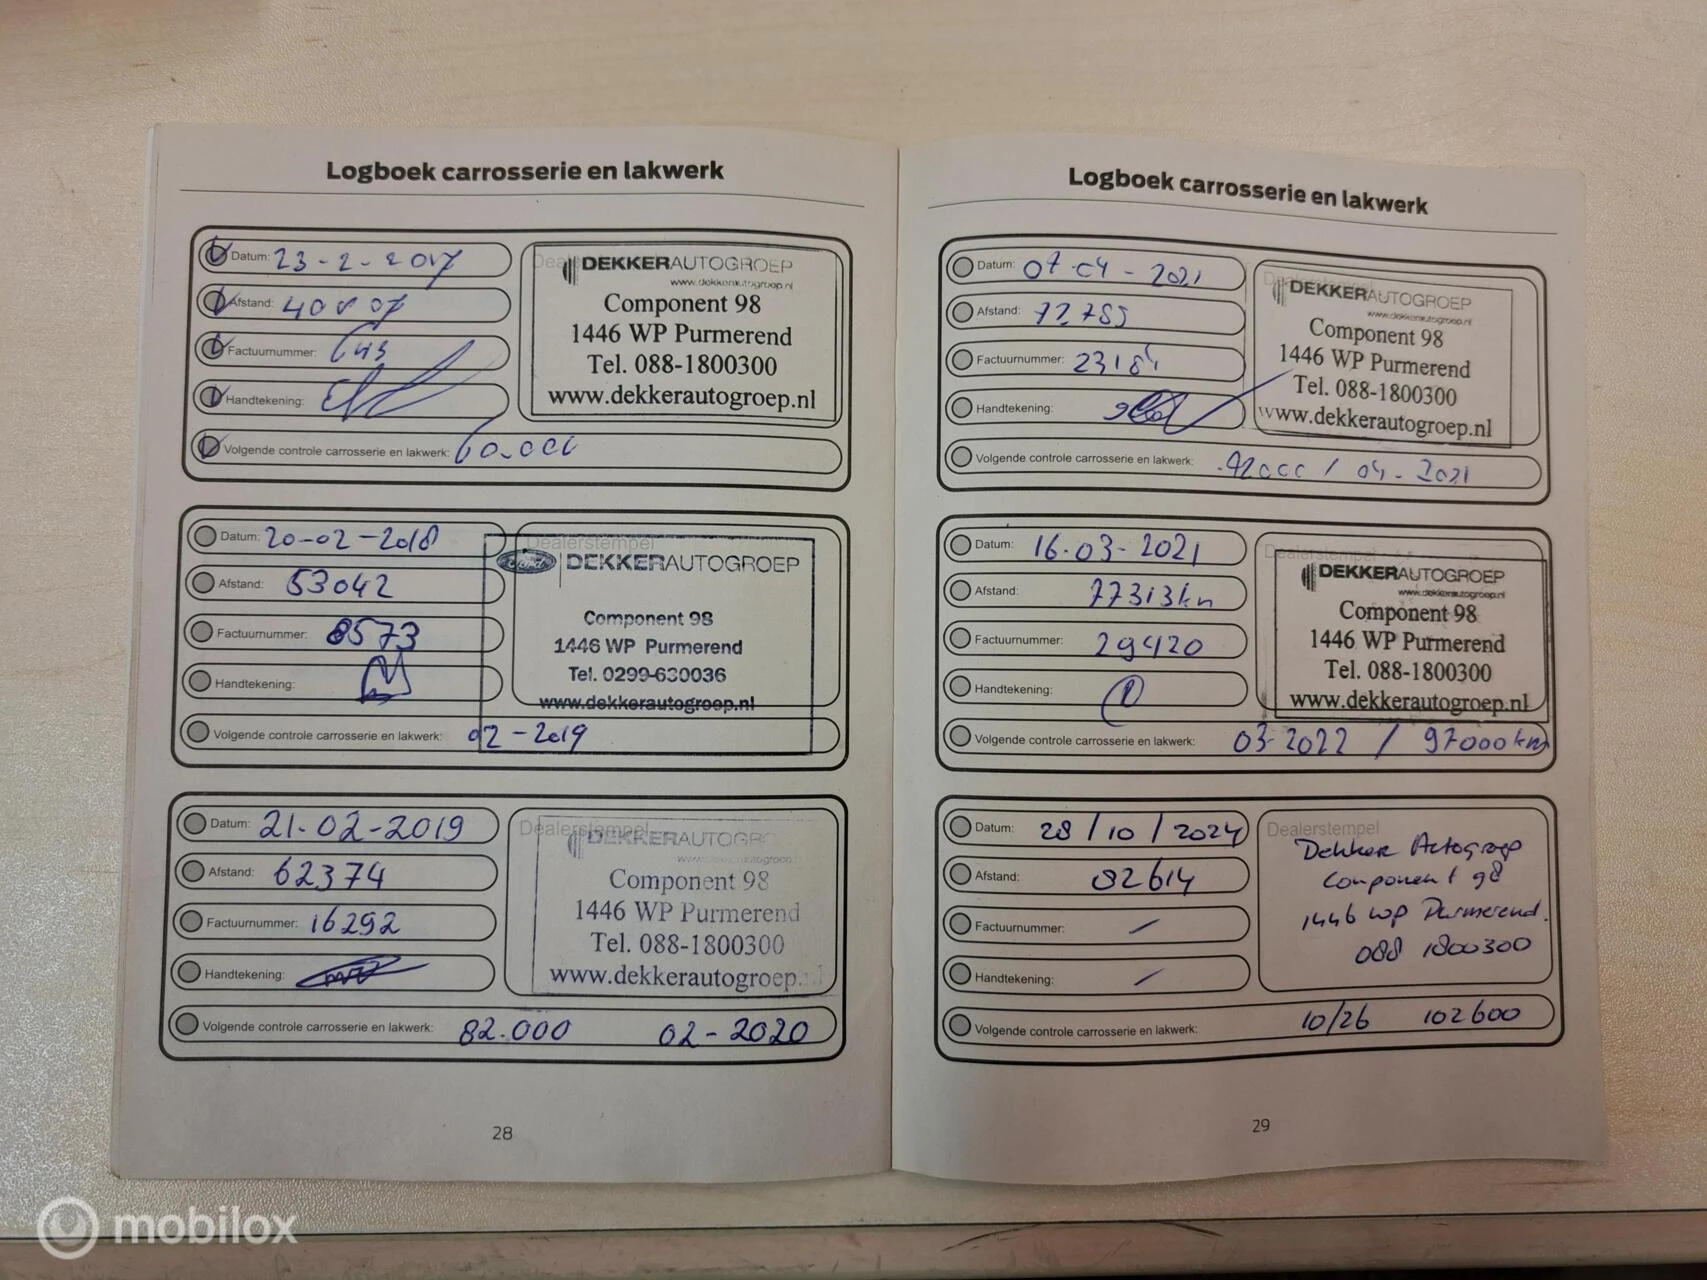 Logboek carrosserie en lakwerk
Datum: 23-2-2017
Afstand:
Factuurnummer:
Handtekening:
Volgende controle carrosserie en lakwerk: 60.000
DEKKERAUTOGROEP
www.dekkerautogroep.nl
Component 98
1446 WP Purmerend
Tel. 088-1800300
www.dekkerautogroep.nl
Datum: 20-02-2018
Afstand: 53042
Factuurnummer: 8573
Handtekening:
Volgende controle carrosserie en lakwerk: 02-2019
Dealerstempel
Ford DEKKERAUTOGROEP
Component 98
1446 WP Purmerend
Tel. 0299-630036
www.dekkerautogroep.nl
Datum: 21-02-2019
Afstand: 62374
Factuurnummer: 16292
Handtekening:
Volgende controle carrosserie en lakwerk: 82.000 02-2020
Dealerstempel
DEKKERAUTOGRO
Component 98
1446 WP Purmerend
Tel. 088-1800300
www.dekkerautogroep.nl
28
Logboek carrosserie en lakwerk
Datum: 07-04-2021
Afstand: 72785
Factuurnummer: 23184
Handtekening:
Volgende controle carrosserie en lakwerk: 92000 / 04-2021
Dealerstempel
DEKKERAUTOGROEP
www.dekkerautogroep.nl
Component 98
1446 WP Purmerend
Tel. 088-1800300
www.dekkerautogroep.nl
Datum: 16-03-2021
Afstand: 77313km
Factuurnummer: 29420
Handtekening:
Volgende controle carrosserie en lakwerk: 03-2022 / 97000km
Dealerstempel
DEKKERAUTOGROEP
www.dekkerautogroep.nl
Component 98
1446 WP Purmerend
Tel. 088-1800300
www.dekkerautogroep.nl
Datum: 28/10/2024
Afstand: 82614
Factuurnummer: /
Handtekening: /
Volgende controle carrosserie en lakwerk: 10/26 102600
Dealerstempel
Dekker Autogroep
Component 98
1446 WP Purmerend.
088 1800300
29
mobilox